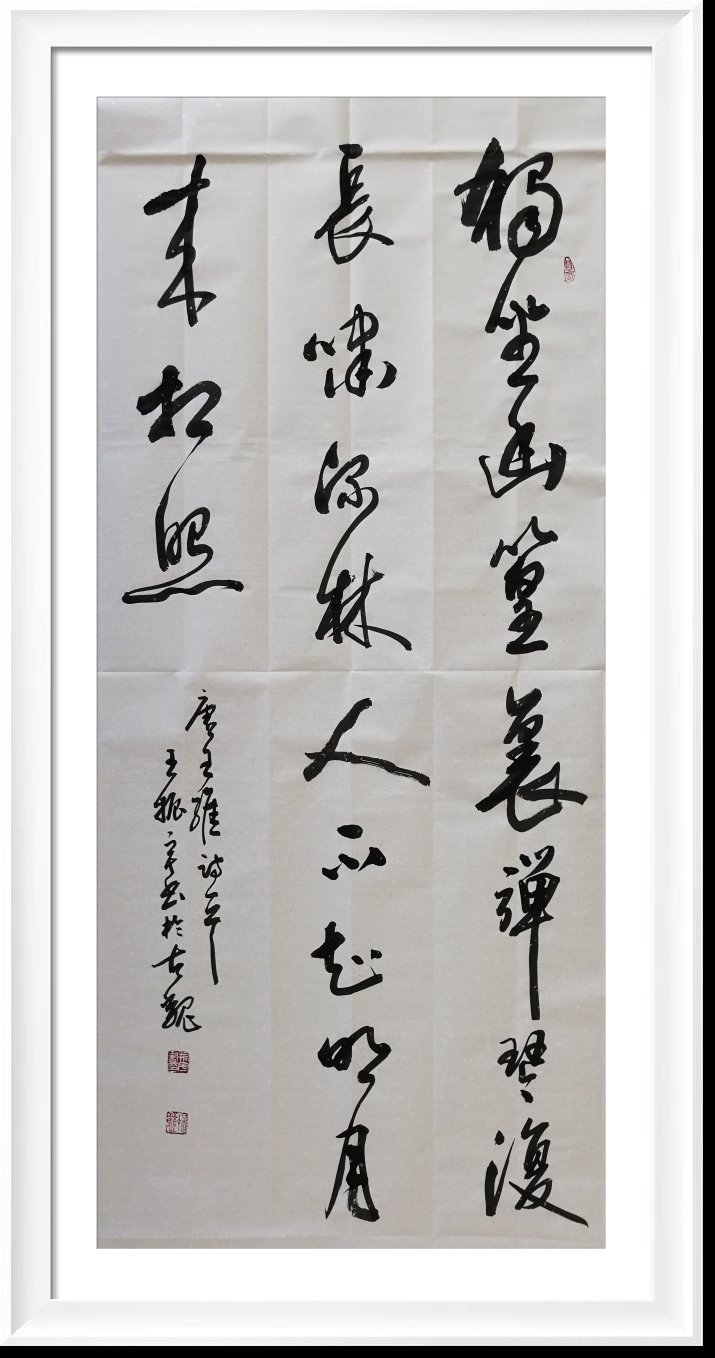 獨坐幽篁裏彈琴復
長嘯深林人不知明月
來相照
唐王維詩
王振書於古魏